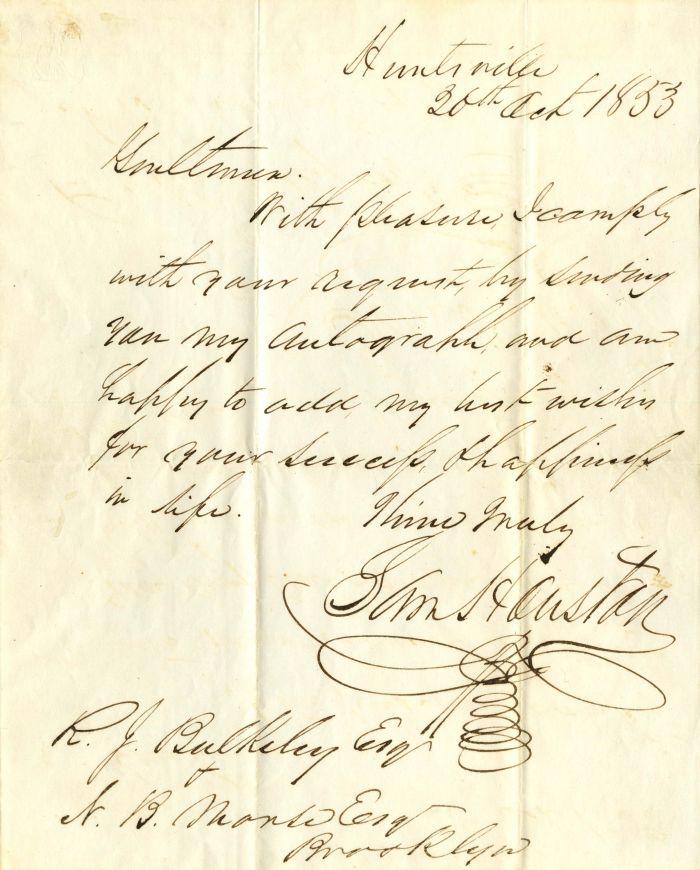 Huntsville
20th Oct 1853
Gentlemen.
With pleasure, I comply
with your request, by sending
you my Autograph, and am
happy to add, my best wishes
for your success, & happiness
in life.  Thine Truly
Sam Houston
R. J. Bulkeley Esqr
&
N. B. Morse Esqr
Brooklyn